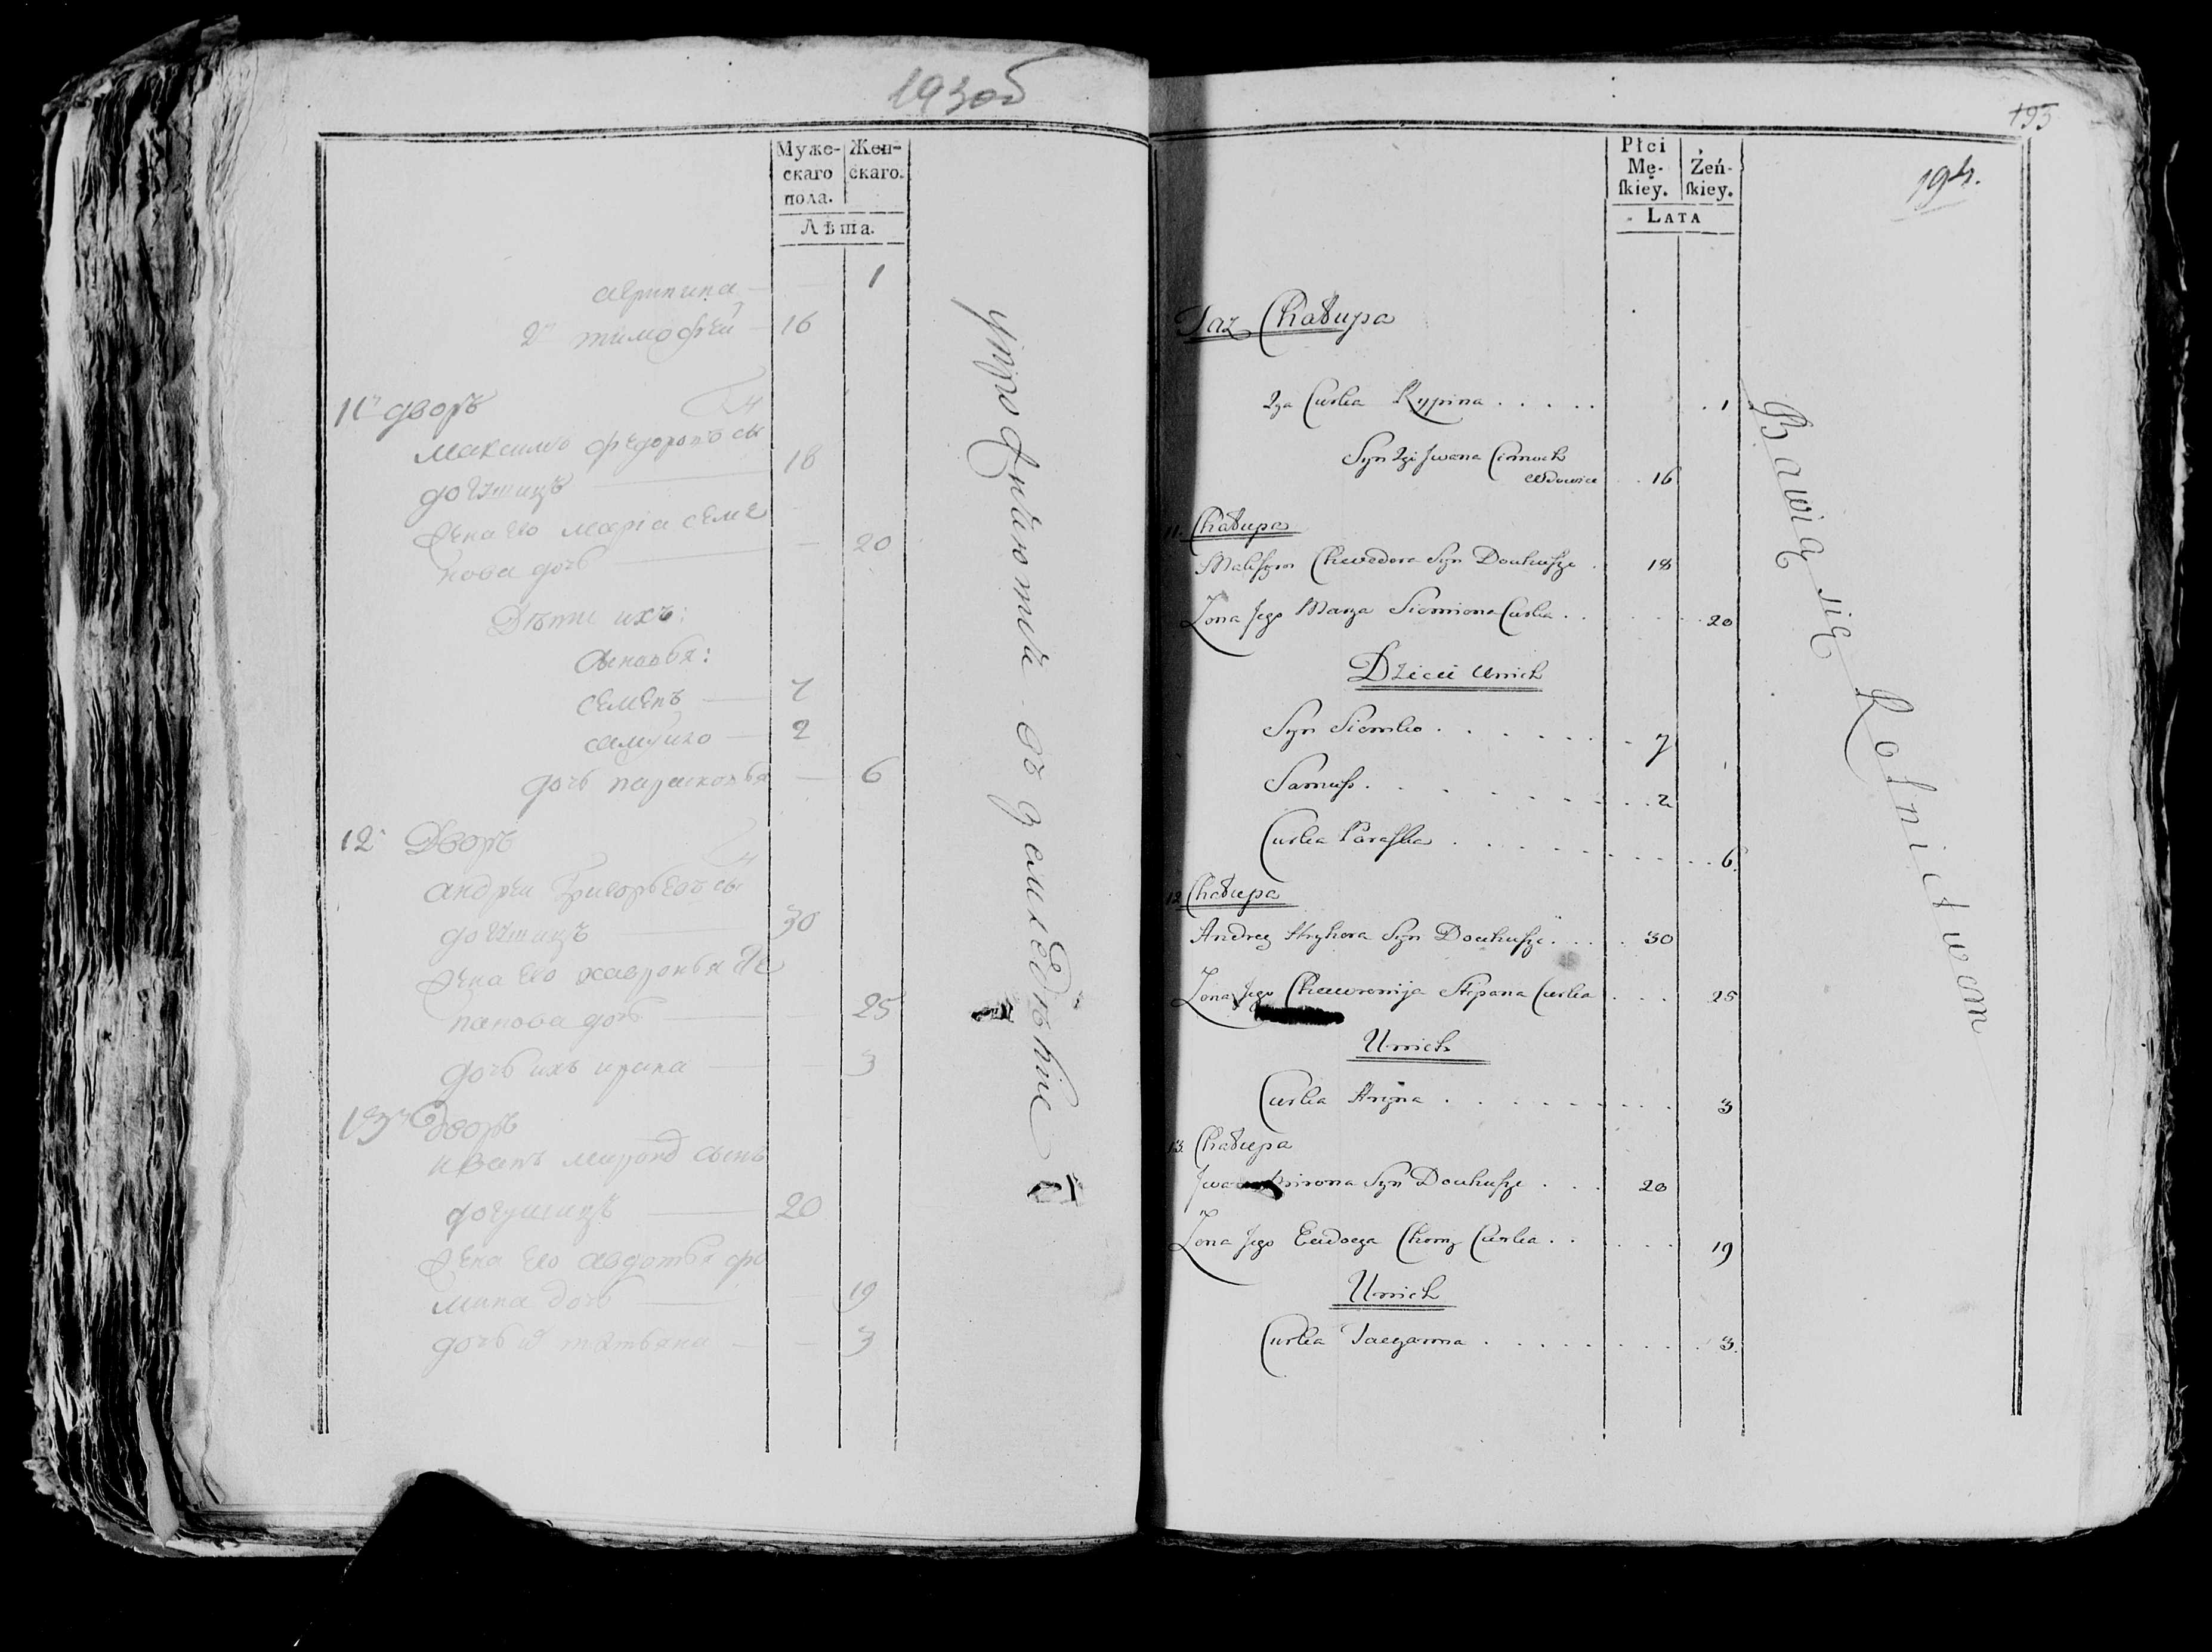 193об
Муже-
скаго
пола.
Жен-
скаго.
Лѣта.
агрипина — — 1
2й тимофей — 16
11й дворъ
максимъ федоровъ сы
18
жена его марiа семе
нова дочь — — 20
Дѣти ихъ:
сыновья:
семенъ — 7
самуило — 2
дочь парасковья — 6
12й Дворъ
андрей григорьевъ сы
30
жена его хавронья сте
панова дочь — — 25
дочь ихъ ирина — — 3
13й дворъ
иванъ миронъ сынъ
20
жена его авдотья фо
мина дочь — — 19
дочь татьяна — — 3
упрожняютса въ земледѣлiе
195
194.
Płci
Mę-
ſkiey.
Żeń-
ſkiey.
LATA
Taz Chałupa
2ga Curka Rypina . . . . . 1
Syn 2gi Jwana
Wdowica . . 16
11. Chałupa
Makſym Chwedora Syn . 18
Zona Jego Marya Siemiona Curka . . . . . 20
Dzieci Unich
Syn Siemko . . . . . . 7
Samuſz . . . . . . . . . 2
Curka Paraſka . . . . . . . . . 6.
12 Chałupa
Andrey Hryhora Syn . . . . 30
Zona Jego Chawronija Stepana Curka . . . 25
Unich
Curka Hryna . . . . . . . . 3
13. Chałupa
Jwan Mirona Syn . . . 20
Zona Jego Eudocya Chomy Curka . . . . . 19
Unich
Curka Taczanna . . . . . . . . 3.
Bawią się Rolnictwom